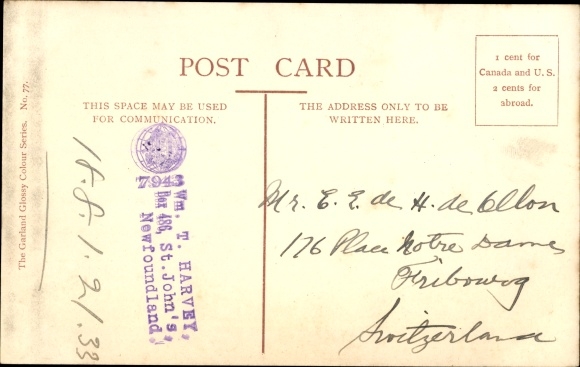 POST CARD
THIS SPACE MAY BE USED
FOR COMMUNICATION.
THE ADDRESS ONLY TO BE
WRITTEN HERE.
1 cent for
Canada and U.S.
2 cents for
abroad.
The Garland Glossy Colour Series. No. 77.
7943
Wm. T. HARVEY,
Box 486, St. John's,
Newfoundland.
Mr. E. E. de H. de Ollon
176 Place Notre Dame
Fribourg
Switzerland